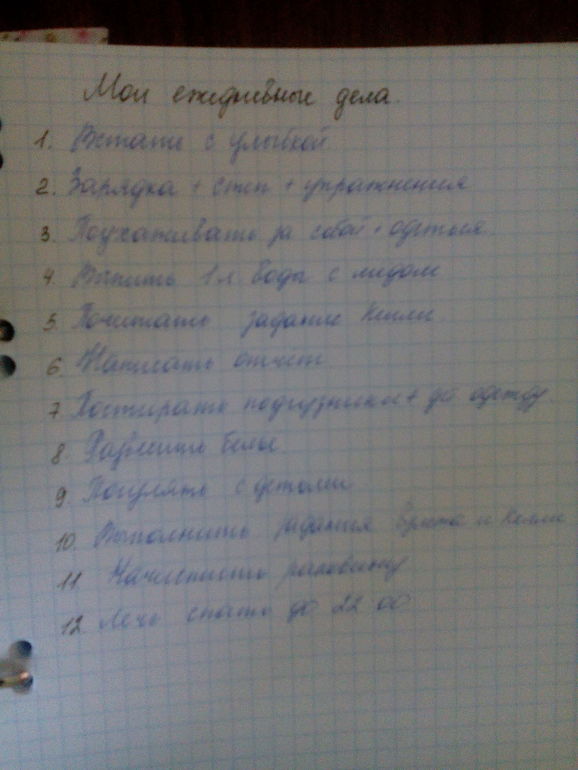 Мои ежедневные дела.
1. Встать с улыбкой
2. Зарядка + степ + упражнения
3. Поухаживать за собой + одеться.
4. Выпить 1 л. воды с медом
5. Почитать задание Келли.
6. Написать отчёт
7. Постирать подгузники + до одежду
8. Развешить белье.
9 Погулять с детьми
10. Выполнить задания и Келли
11. Начистить раковину
12. Лечь спать до 22 00